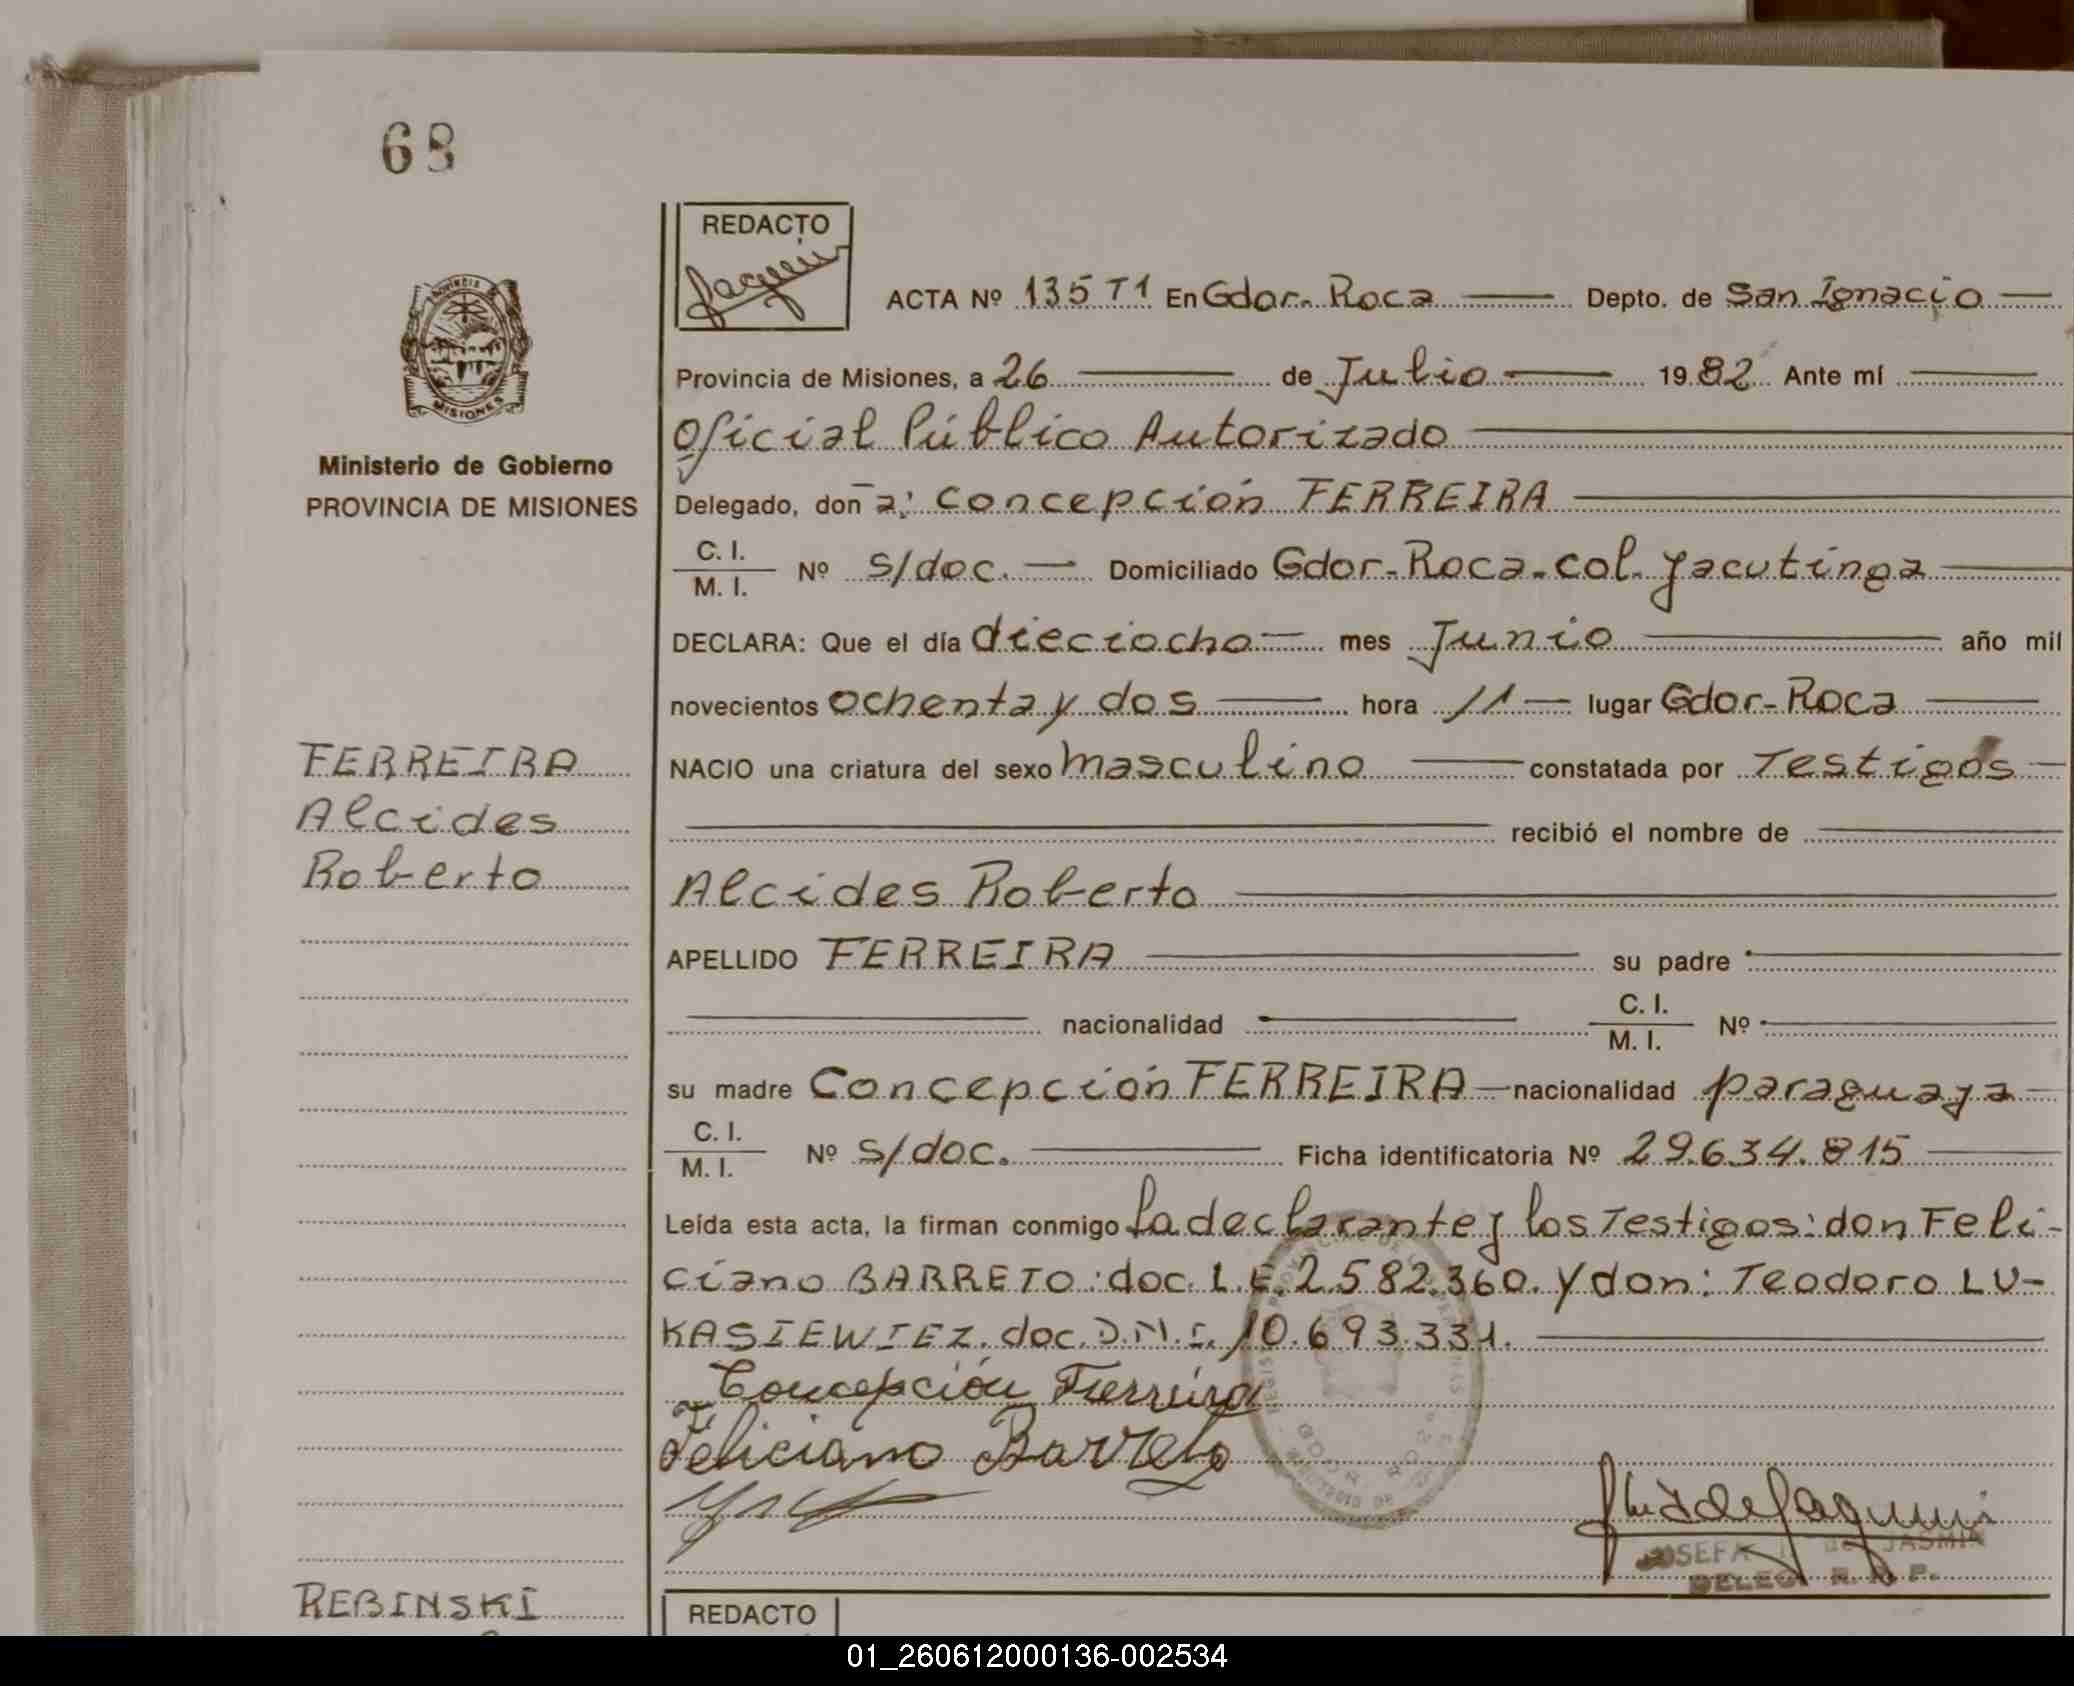 68
REDACTO
ACTA Nº 135 T1 En Gdor. Roca Depto. de San Ignacio
Provincia de Misiones, a 26 de Julio 1982 Ante mí
Oficial Público Autorizado
Ministerio de Gobierno
PROVINCIA DE MISIONES
MISIONES
Delegado, don a: Concepción FERREIRA
C. I.
M. I. Nº s/doc. Domiciliado Gdor-Roca-col. Yacutinga
DECLARA: Que el día dieciocho mes Junio año mil
novecientos ochenta y dos hora 11 lugar Gdor-Roca
FERREIRA
Alcides
Roberto
NACIO una criatura del sexo masculino constatada por Testigos
recibió el nombre de
Alcides Roberto
APELLIDO FERREIRA su padre
nacionalidad C. I.
M. I. Nº
su madre Concepción FERREIRA nacionalidad paraguaya
C. I.
M. I. Nº s/doc. Ficha identificatoria Nº 29.634.815
Leída esta acta, la firman conmigo la declarante y los Testigos: don Feli-
ciano BARRETO: doc. L.E. 2.582.360. y don: Teodoro LU-
KASIEWIEZ. doc. D.N.I. 10.693.331.
Concepción Ferreira
Feliciano Barreto
JOSEFA de JASMIN
DELEG. R. P.
REBINSKI
REDACTO
01_260612000136-002534